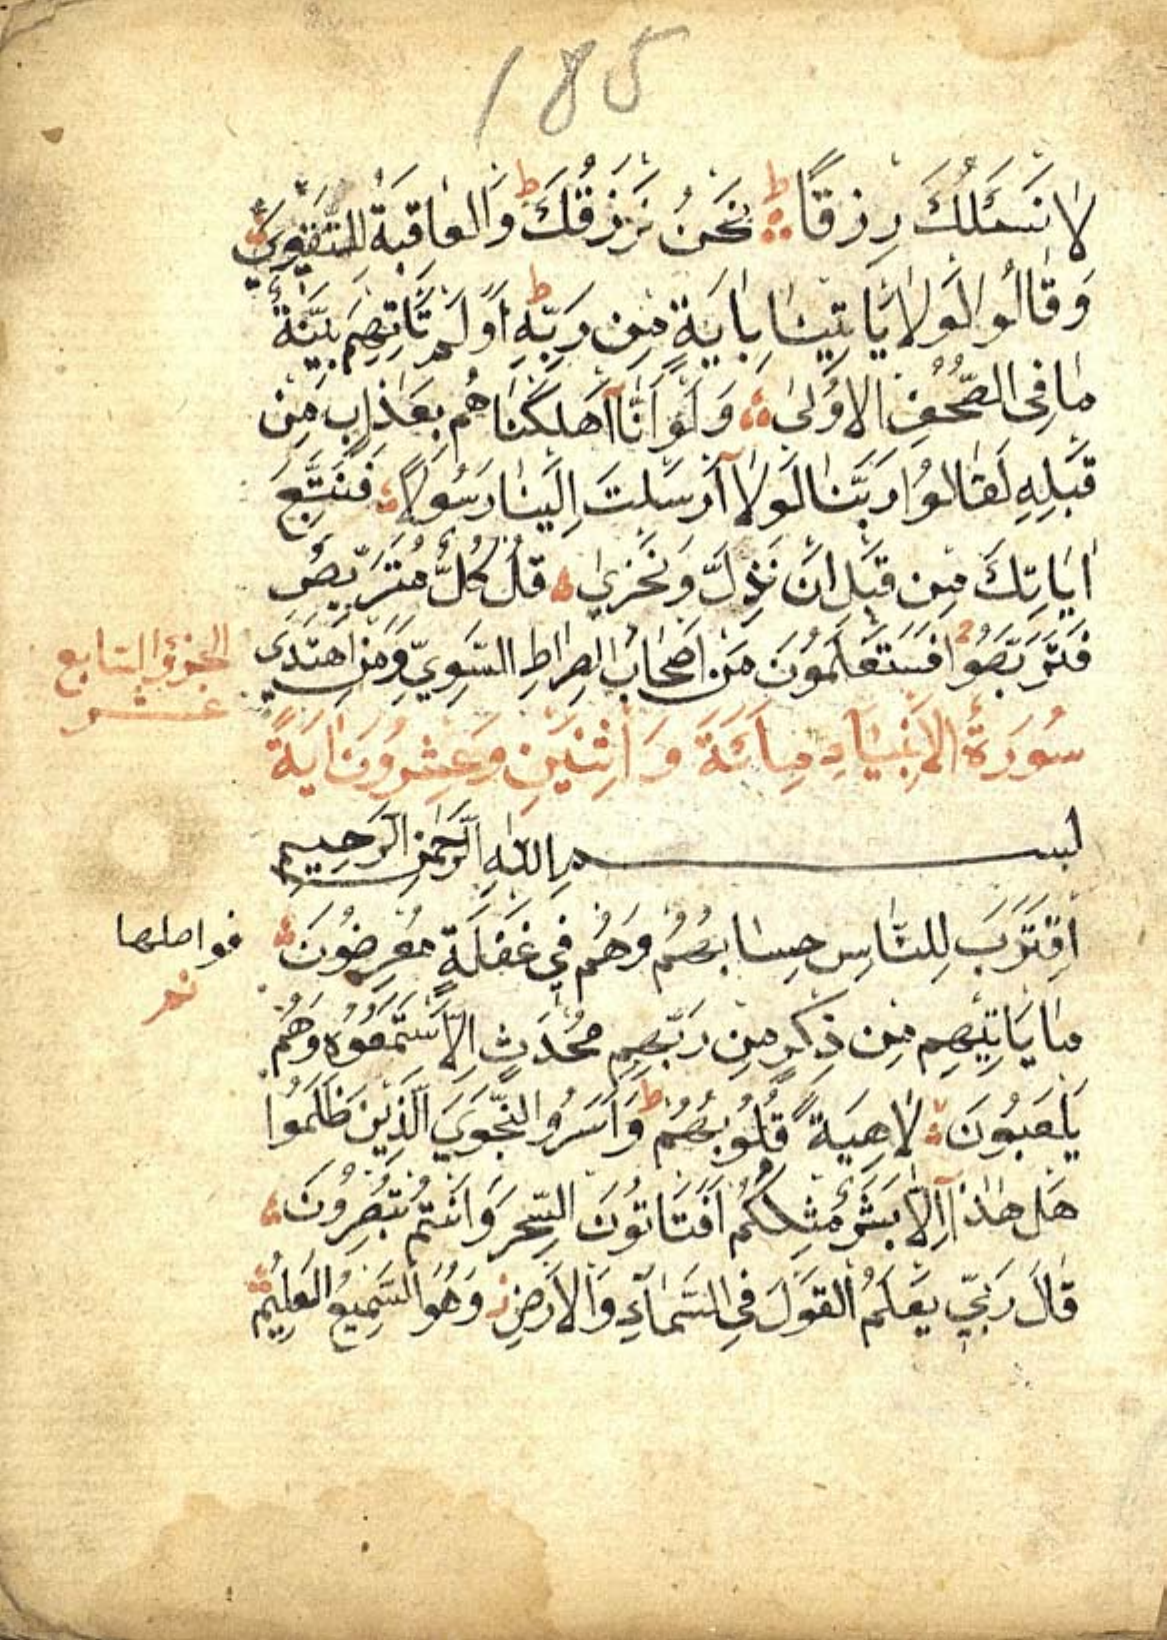 185
لَا نَسْئَلُكَ رِزْقًا ط نَحْنُ نَرْزُقُكَ ط وَالْعَاقِبَةُ لِلتَّقْوَىٰ
وَقَالُوا لَوْلَا يَاْتِينَا بِاٰيَةٍ مِنْ رَبِّهِ ط اَوَلَمْ تَاْتِهِمْ بَيِّنَةُ
مَا فِى الصُّحُفِ الْاُولٰى وَلَوْ اَنَّا اَهْلَكْنَاهُمْ بِعَذَابٍ مِنْ
قَبْلِهِ لَقَالُوا رَبَّنَا لَوْلَا اَرْسَلْتَ اِلَيْنَا رَسُولًا فَنَتَّبِعَ
اٰيَاتِكَ مِنْ قَبْلِ اَنْ نَذِلَّ وَنَخْزٰى قُلْ كُلٌّ مُتَرَبِّصٌ
فَتَرَبَّصُوا فَسَتَعْلَمُونَ مَنْ اَصْحَابُ الصِّرَاطِ السَّوِيِّ وَمَنِ اهْتَدٰى
الجزؤ السابع
عشر
سُورَةُ الْاَنْبِيَآءِ مِائَةٌ وَاثْنَيْنِ وَعِشْرُونَ اٰيَةً
بِسْمِ اللّٰهِ الرَّحْمٰنِ الرَّحِيمِ
اِقْتَرَبَ لِلنَّاسِ حِسَابُهُمْ وَهُمْ فِي غَفْلَةٍ مُعْرِضُونَ
فواصلها
نم
مَا يَاْتِيهِمْ مِنْ ذِكْرٍ مِنْ رَبِّهِمْ مُحْدَثٍ اِلَّا اسْتَمَعُوهُ وَهُمْ
يَلْعَبُونَ لَاهِيَةً قُلُوبُهُمْ ط وَاَسَرُّوا النَّجْوَى الَّذِينَ ظَلَمُوا
هَلْ هٰذَا اِلَّا بَشَرٌ مِثْلُكُمْ اَفَتَاْتُونَ السِّحْرَ وَاَنْتُمْ تُبْصِرُونَ
قَالَ رَبِّي يَعْلَمُ الْقَوْلَ فِى السَّمَآءِ وَالْاَرْضِ ز وَهُوَ السَّمِيعُ الْعَلِيمُ